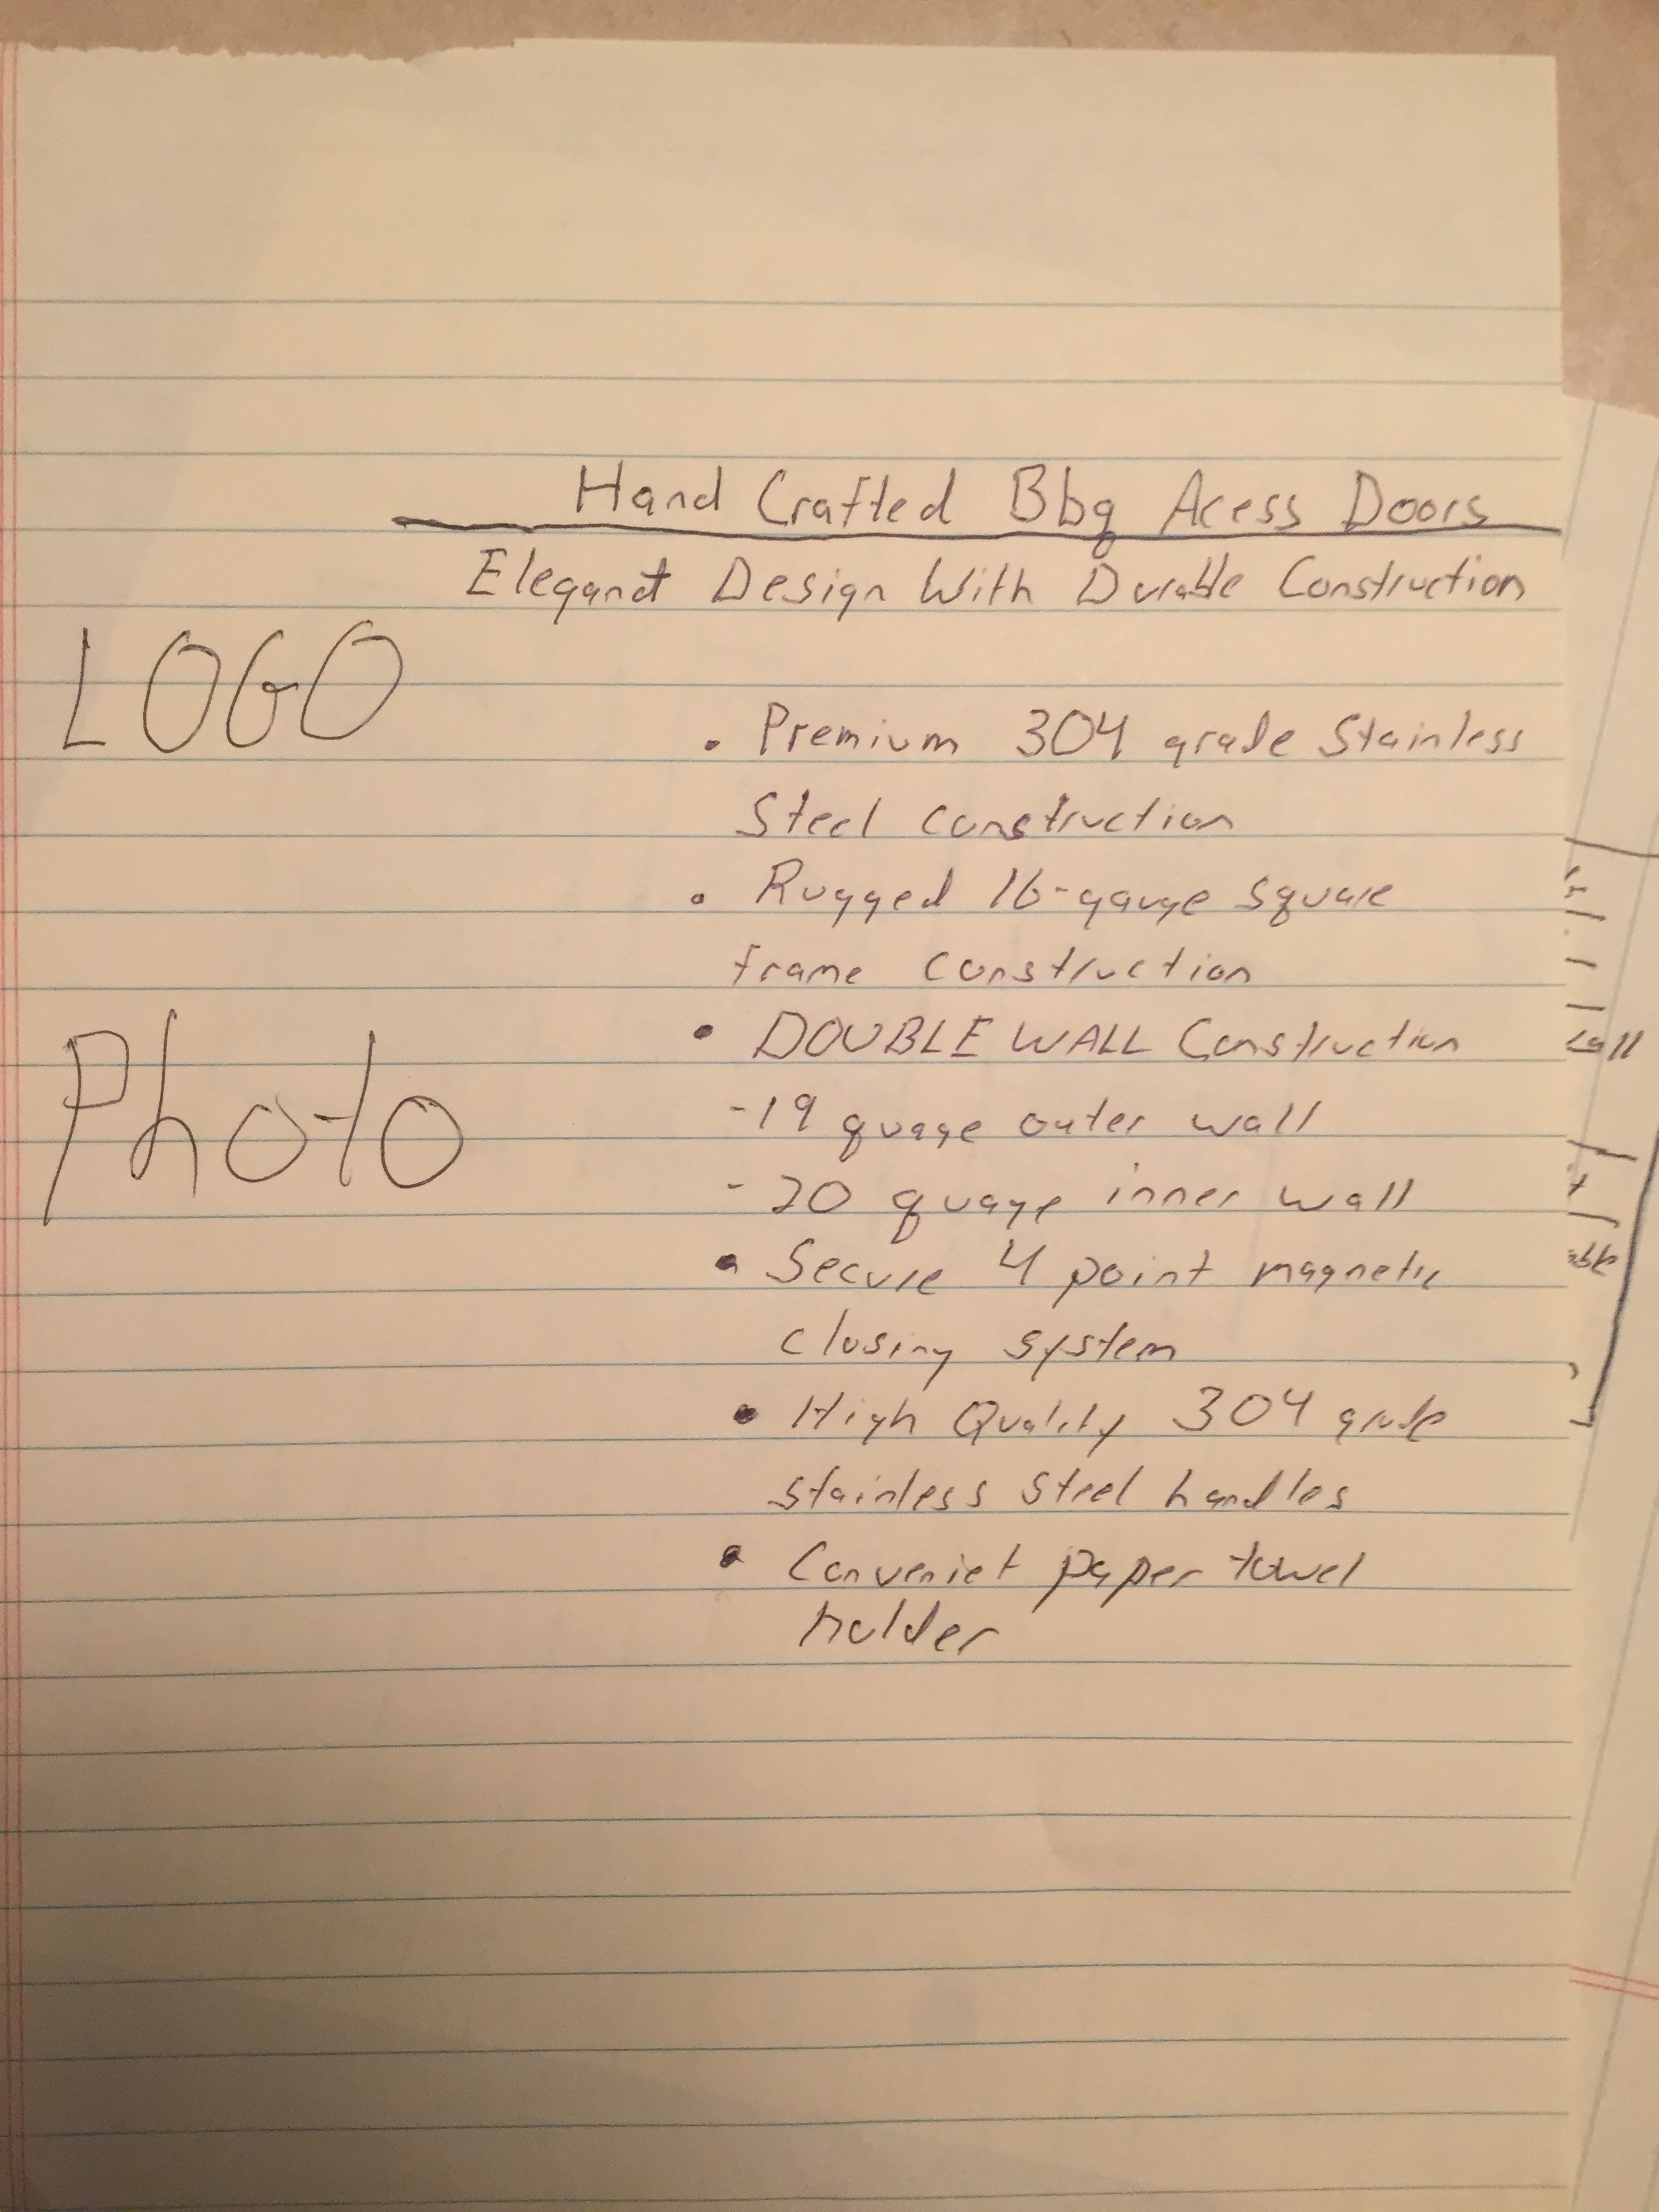 Hand Crafted Bbq Acess Doors
Elegant Design With Durable Construction
LOGO
• Premium 304 grade Stainless
Steel construction
• Rugged 16-gauge square
frame construction
Photo
• DOUBLE WALL Construction
-19 quage outer wall
-20 quage inner wall
• Secure 4 point magnetic
closing system
• High Quality 304 grade
stainless steel handles
• Conveniet paper towel
holder